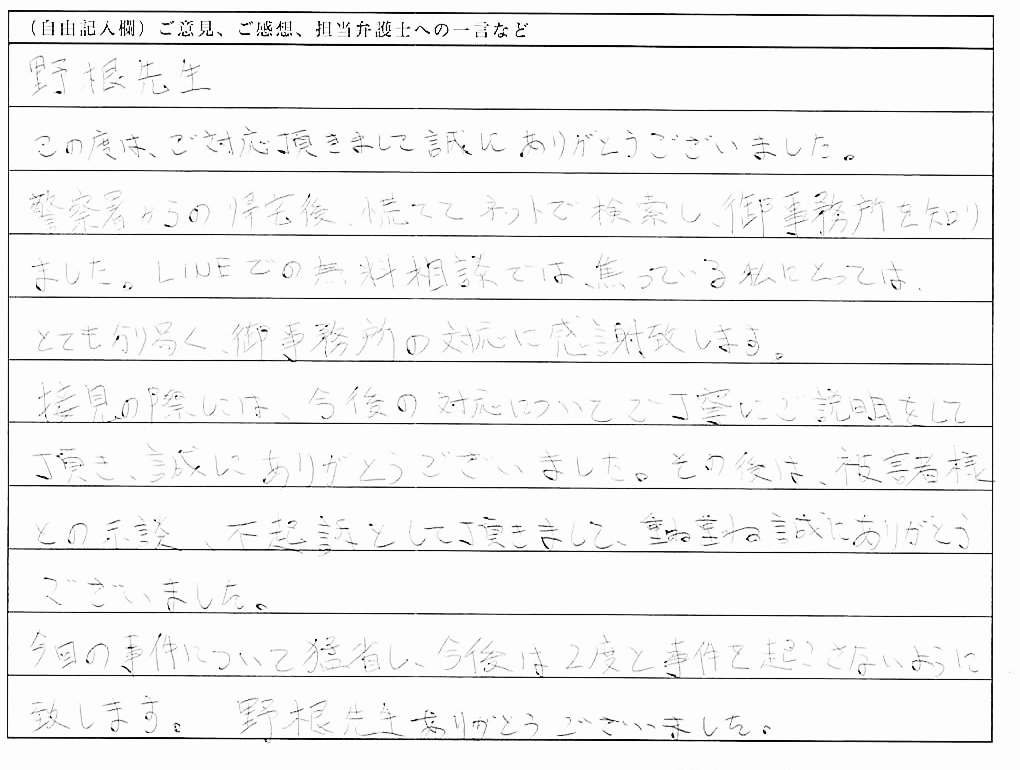 （自由記入欄）ご意見、ご感想、担当弁護士への一言など
野根先生
この度は、ご対応頂きまして誠にありがとうございました。
警察署からの帰宅後、慌ててネットで検索し、御事務所を知り
ました。LINEでの無料相談では、焦っている私にとっては、
とても分り易く、御事務所の対応に感謝致します。
接見の際には、今後の対応についてご丁寧にご説明をして
頂き、誠にありがとうございました。その後は、被害者様
との示談、不起訴として頂きまして、重ね重ね誠にありがとう
ございました。
今回の事件について猛省し、今後は2度と事件を起こさないように
致します。 野根先生ありがとうございました。